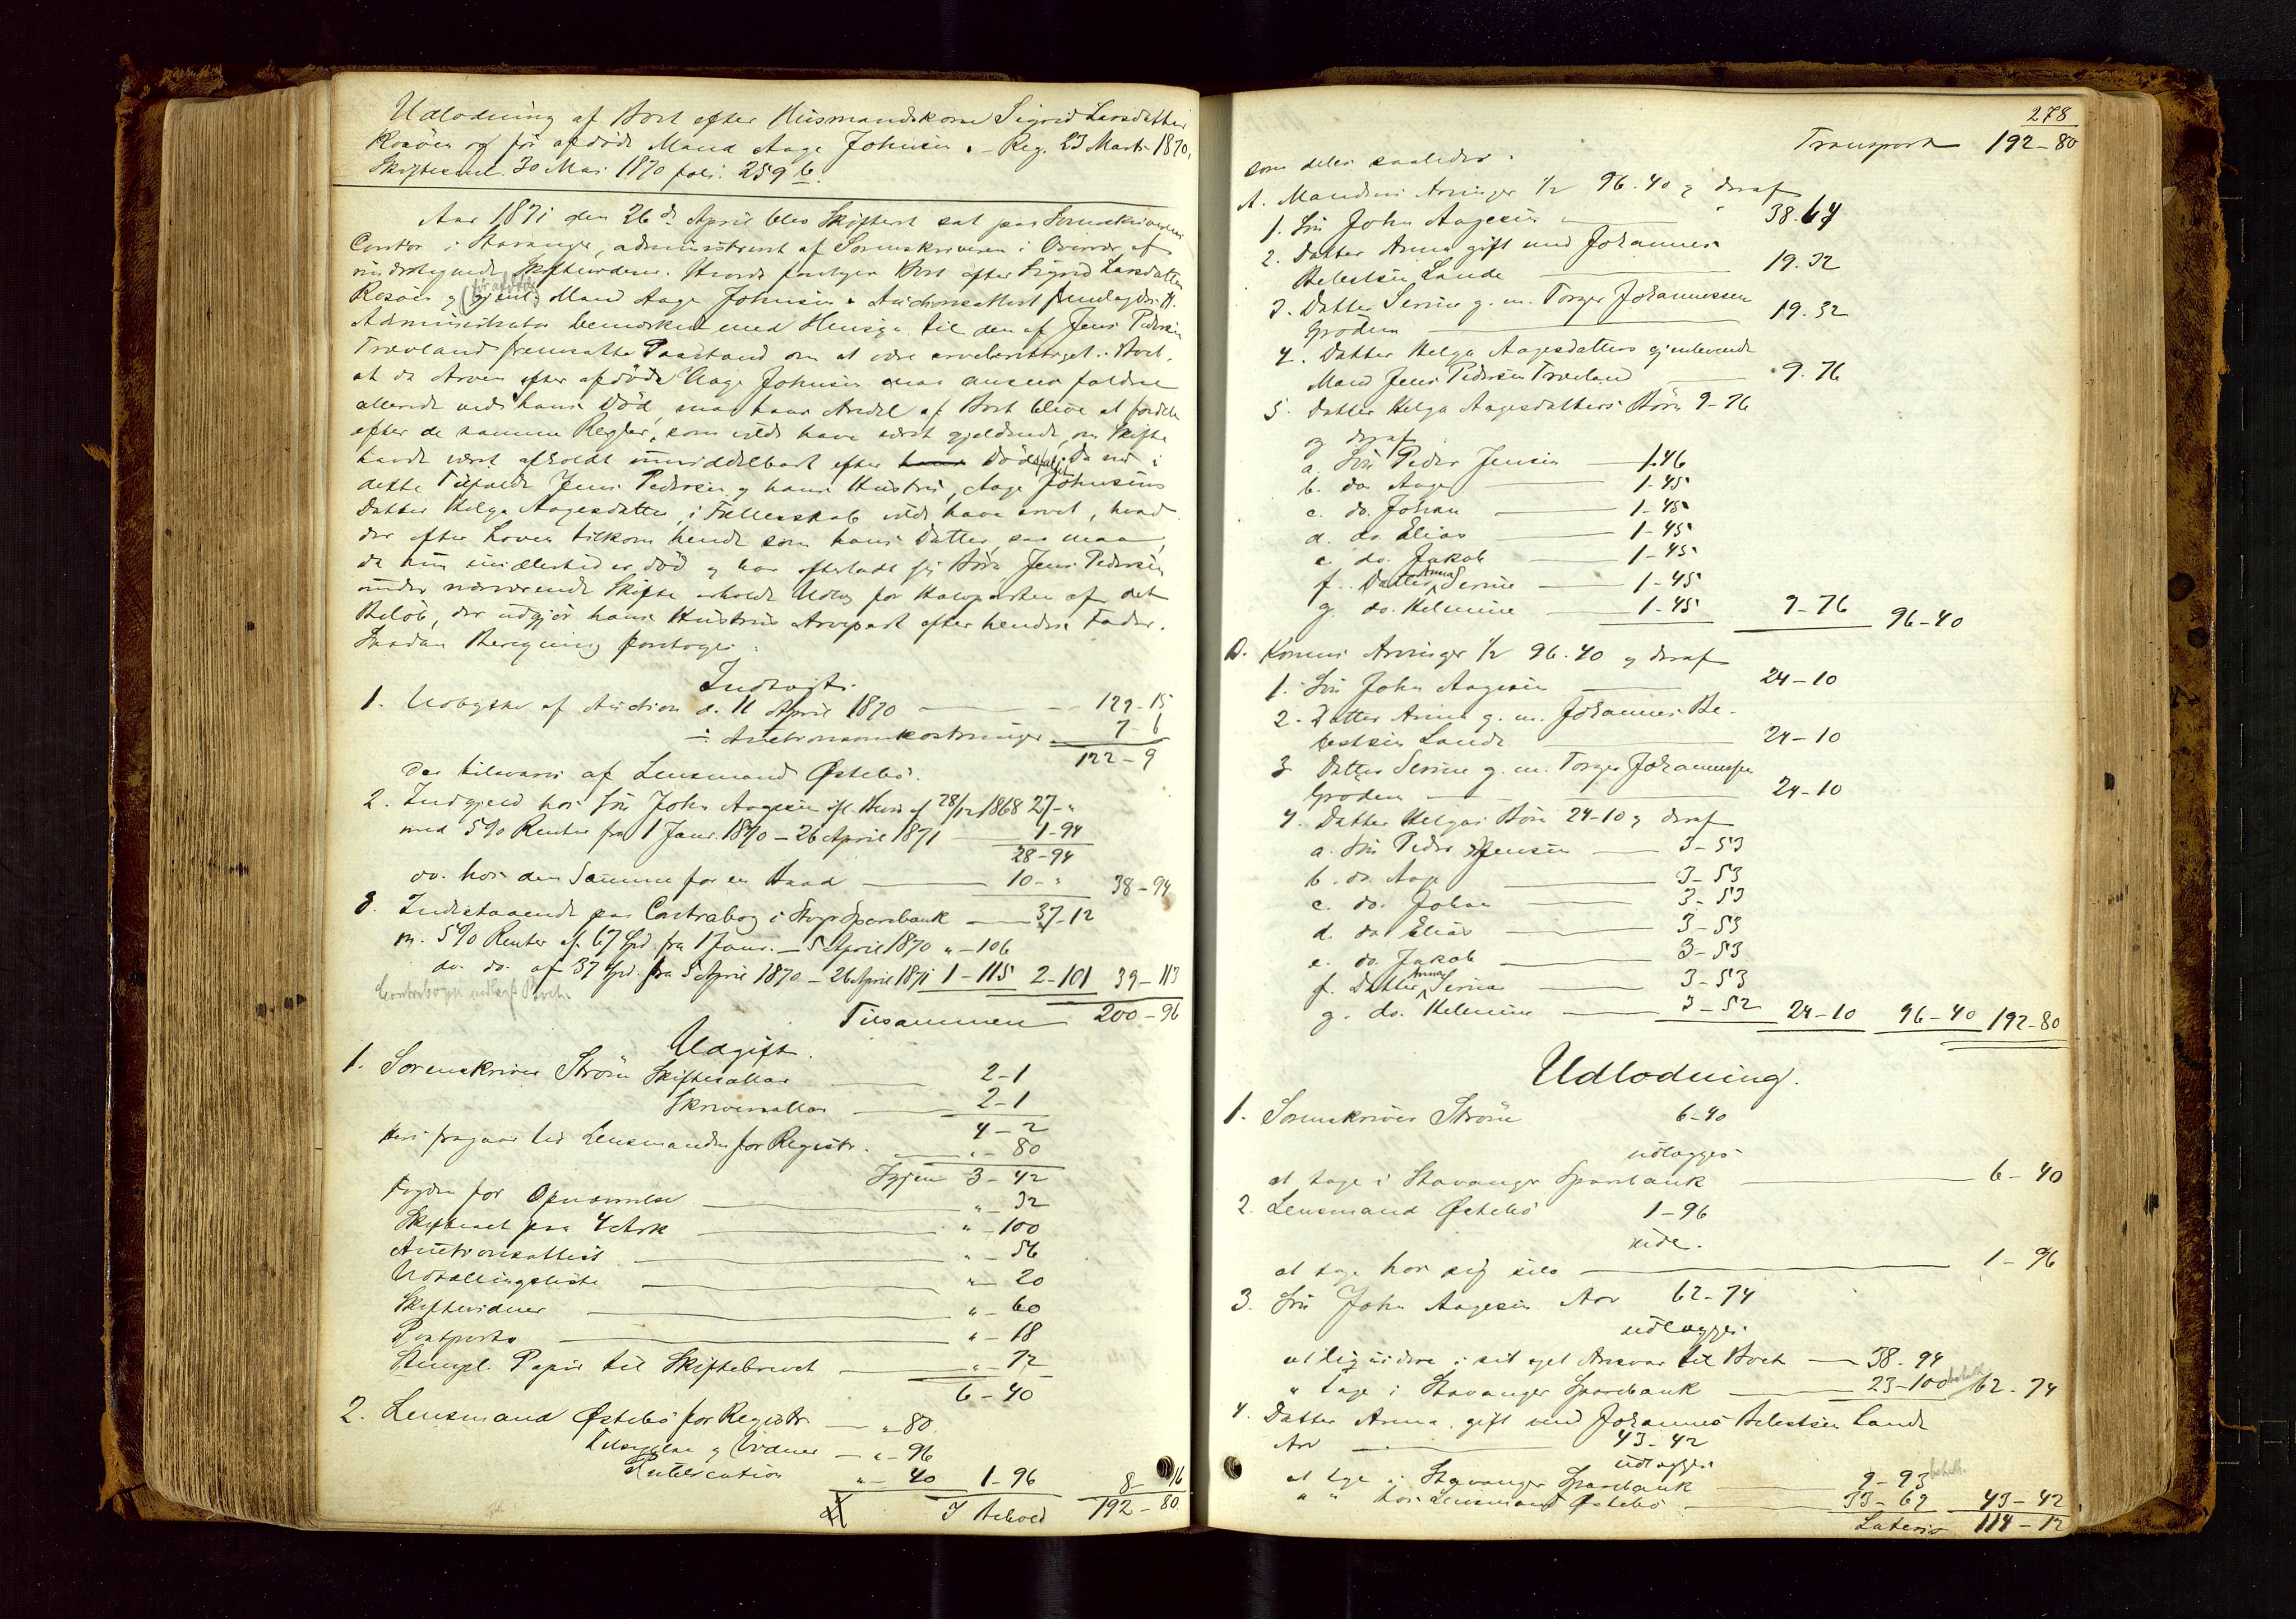 Udlodning af Boet efter Huusmandskone Sigrid Larsdatter
Rosöen og för afdöde Mand Aage Johnsen. – Reg. 23 Marts 1870,
Skiftesaml. 30 Mai 1870 fol. 259 b.
Aar 1871 den 26de April blev Skifteret sat paa Sorenskriverens
Contor i Stavanger, administreret af Sorenskriveren i Overvær af
undertegnede Skiftevidner. Hvorda foretoges Boet efter Sigrid Larsdatter
Rosöen og (för afdöde) Mand Aage Johnsen. Auctionsattest fremlagdes.
Administrator bemærkede med Hensyn til den af Jens Pedersen
Træland fremsatte Paastand om at være arveberettiget i Boet,
at da Arven efter afdöde Aage Johnsen maa ansees falden
allerede ved hans Död, maa hans Andel af Boet blive at fordele
efter de samme Regler, som vilde have været gjeldende, om Skifte
havde været afholdt umiddelbart efter Dödsfaldet. Da nu i
dette Tilfælde Jens Pedersen og hans Hustru, Aage Johnsens
Datter Helga Aagesdatter, i Fællesskab vilde have arvet, hvad
der efter Loven tilkom hende som hans Datter, saa maa,
da hun imidlertid er död og har efterladt sig Börn Jens Pedersen
under nærværende Skifte erholde Udlæg for Halvparten af det
Belöb, der udgjör hans Hustrus Arvepart efter hendes Fader.
Saadan Beregning foretoges:
Indtægt.
1. Udbytte af Auction d. 11 April 1870 129-15
÷ Auctionsomkostninger 7-6
122-9
der tilsvares af Lensmand Østebö.
2. Indgjeld hos Sön John Aagesen ifl. Bevis af 28/12 1868 27-"
med 5% Renter fra 1 Januar 1870 – 26 April 1871 1-94
28-94
do. hos den Samme for en Baad 10-" 38-94
3. Indestaaende paa Contrabog i Stvgr Sparebank 37-12
m. 5% Renter af 67 Spd. fra 1 Januar – 5 April 1870 "-106
do. do. af 37 Spd. fra 5 April 1870 – 26 April 1871 1-115 2-101 39-113
Contrabogen udlagt
Tilsammen 200-96
Udgift.
1. Sorenskriver Ström Skiftesallar 2-1
Skriversallar 2-1
4-2
Heri fragaar til Lensmanden for Registr. "-80
Igjen 3-42
Fogden for Opnævnelse "-32
Skiftebrevet paa 4 Ark "-100
Auctionsattest "-56
Udtællingsliste "-20
Skiftevidner "-60
Postporto "-18
Stempl. Papir til Skiftebrevet "-72
6-40
2. Lensmand Østebö for Registr. "-80
Tilsigelse og Vidner "-96
Publication "-40 1-96 8-16
I Behold 192-80.
278
Transport 192-80
som deles saaledes:
A. Mandens Arvinger 1/2 96.40 og deraf
1. Sön John Aagesen 38.64
2. Datter Anna gift med Johannes
Belestsen Lande 19.32
3. Datter Serine g. m. Torger Johannessen
Grödem 19.32
4. Datter Helga Aagesdatters gjenlevende
Mand Jens Pedersen Træland 9.76
5. Datter Helga Aagesdatters Börn 9-76
og deraf
a. Sön Peder Jensen 1.46
b. do Aage 1-45
c. do. Johan 1-45
d. do. Elias 1-45
e. do. Jakob 1-45
f. Datter Anna Serine 1-45
g. do. Helmine 1-45 9-76 96-40
B. Konens Arvinger 1/2 96.40 og deraf
1. Sön John Aagesen 24-10
2. Datter Anna g. m. Johannes Be-
lestsen Lande 24-10
3. Datter Serine g. m. Torger Johannessen
Grödem 24-10
4. Datter Helgas Börn 24-10 og deraf
a. Sön Peder Jensen 3-53
b. do. Aage 3-53
c. do. Johan 3-53
d. do Elias 3-53
e. do. Jakob 3-53
f. Datter Anna Serine 3-53
g. do. Helmine 3-52 24-10 96-40 192-80
Udlodning.
1. Sorenskriver Ström 6-40
udlægges
at tage i Stavanger Sparebank 6-40
2. Lensmand Østebö 1-96
udl.
at tage hos sig selv 1-96
3. Sön John Aagesen Arv 62-74
udlægges
at liquidere i sit eget Ansvar til Boet 38.94
" tage i Stavanger Sparebank 23-100 betalt 62-74
4. Datter Anna gift med Johannes Belestsen Lande
Arv 43-42
udlægges
at tage i Stavanger Sparebank 9-93 betalt
" " hos Lensmand Østebö 33-69 43-42
Lateris 114-12